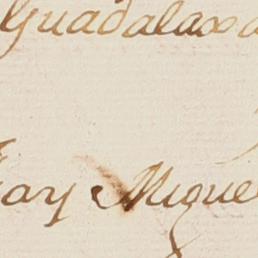 Guadalaxa
ay Migue